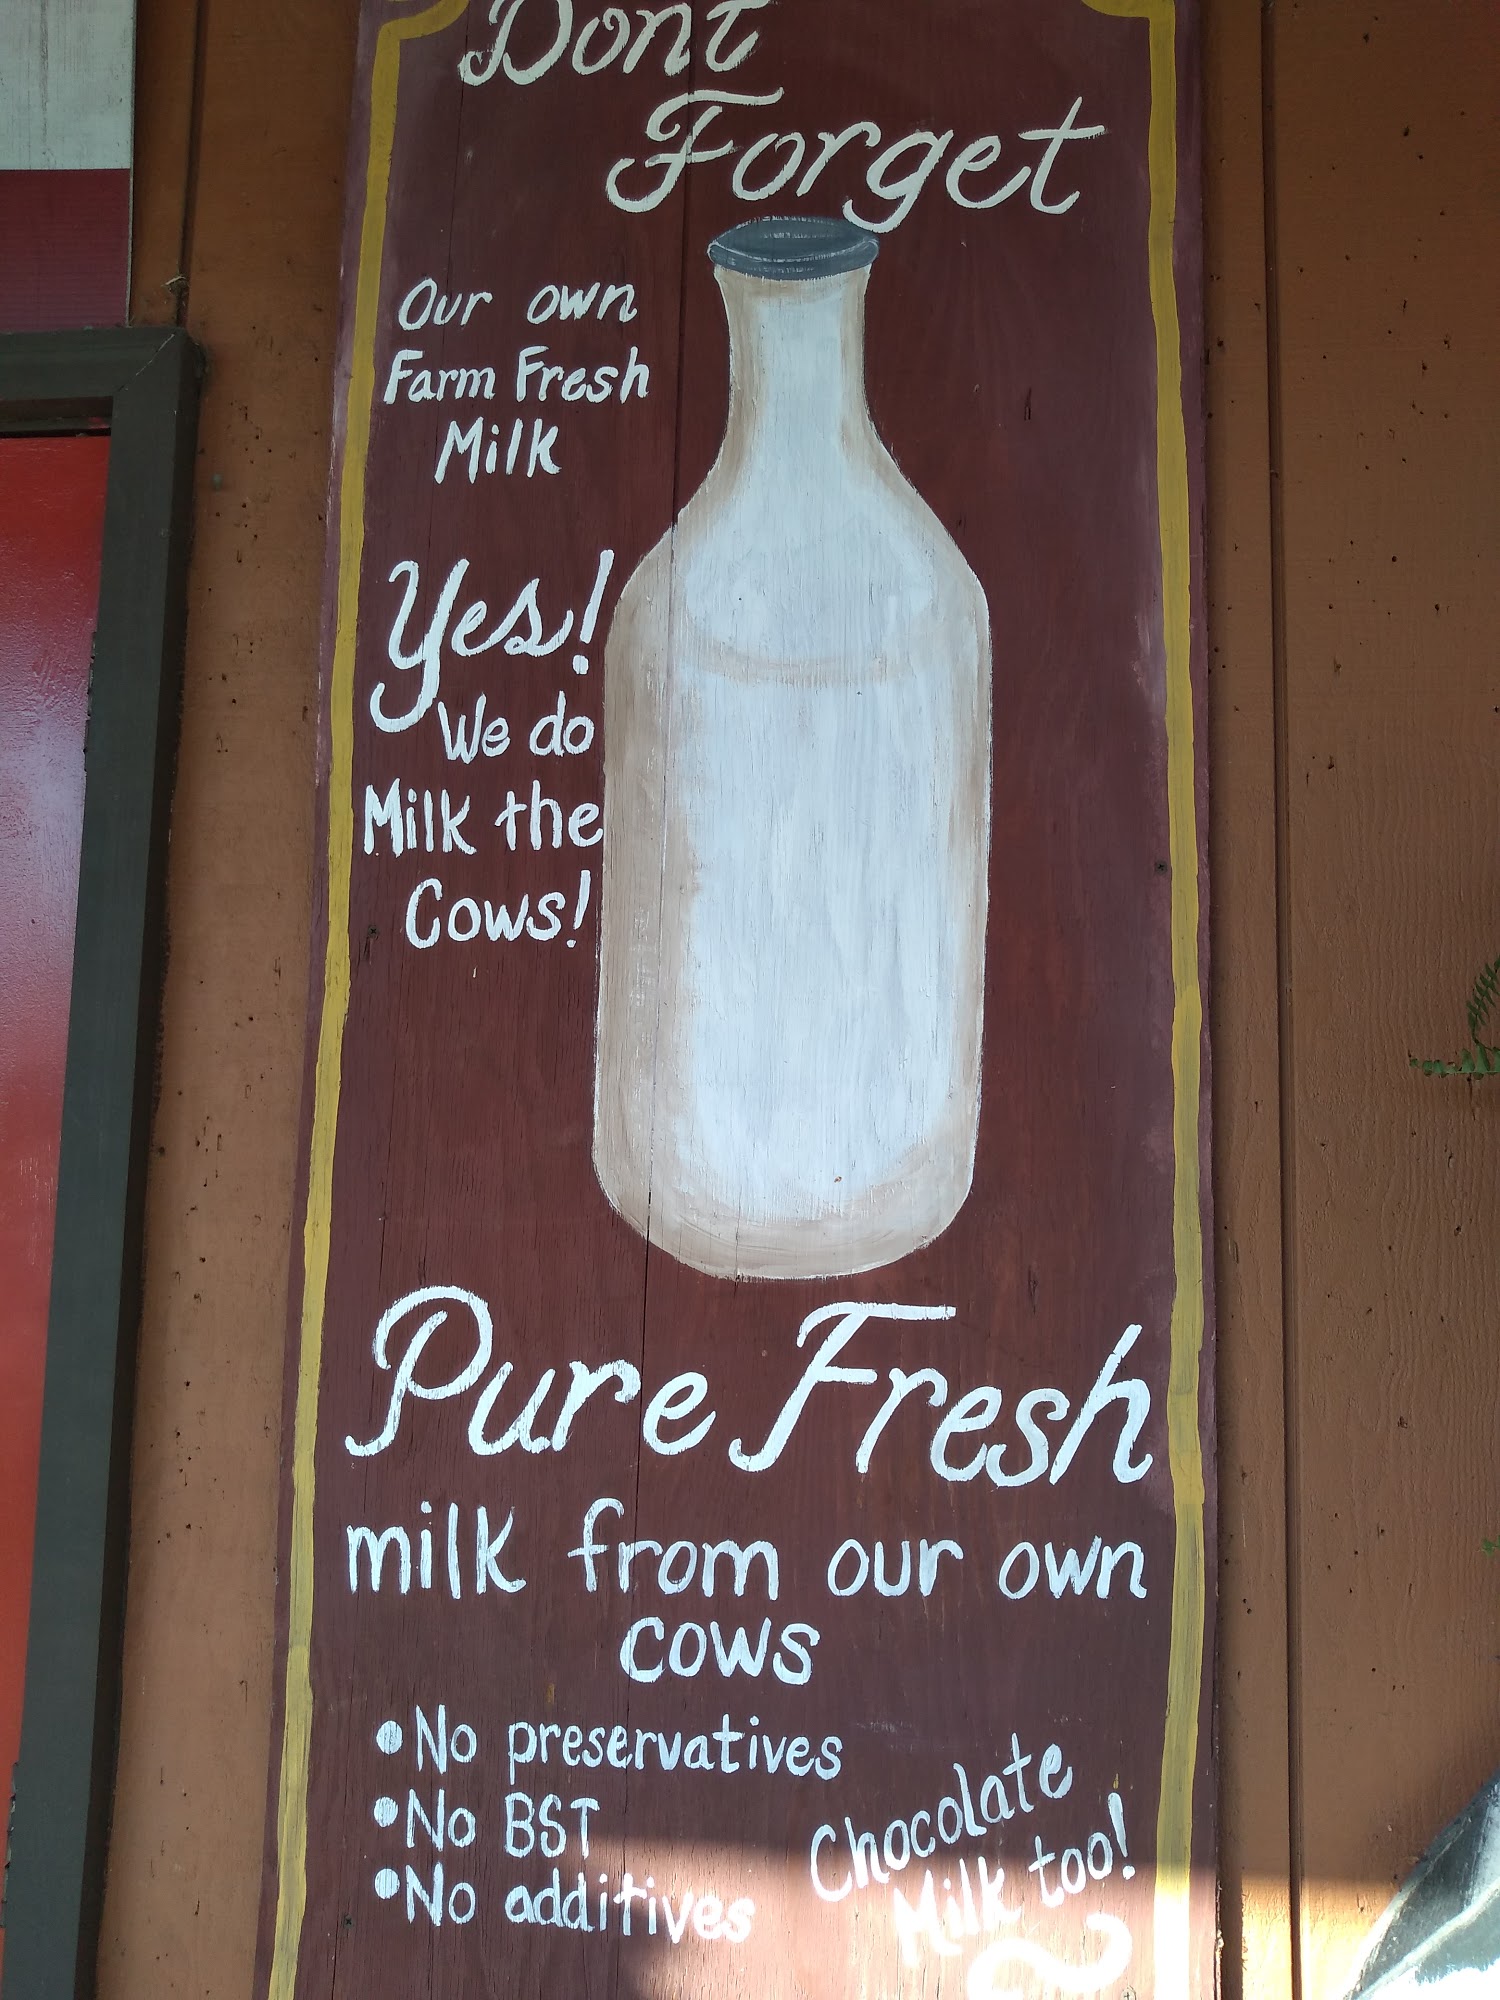 Dont
Forget
Our own
Farm Fresh
Milk
Yes!
We do
Milk the
Cows!
Pure Fresh
milk from our own
cows
•No preservatives
•No BST
•No additives
Chocolate
Milk too!